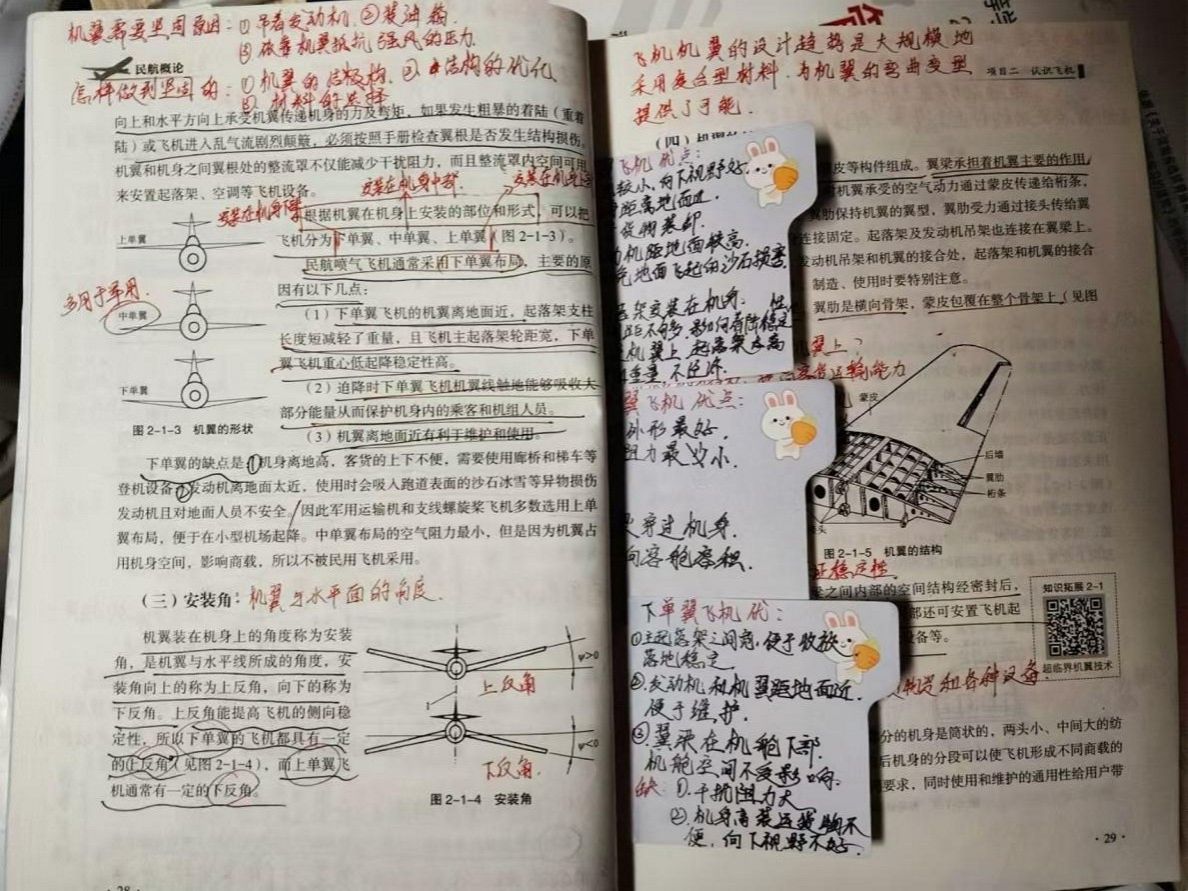 机翼需要坚固原因：①吊着发动机 ②装油箱
③依靠机翼抵抗强风的压力
民航概论
怎样做到坚固的：①机翼的结构 ②结构的优化
③材料的选择
向上和水平方向上承受机翼传递机身的力及弯矩，如果发生粗暴的着陆（重着
陆）或飞机进入乱气流剧烈颠簸，必须按照手册检查翼根是否发生结构损伤。
机翼和机身之间翼根处的整流罩不仅能减少干扰阻力，而且整流罩内空间可用
来安置起落架、空调等飞机设备。
安装在机身中部
安装在机身上
安装在机身下
根据机翼在机身上安装的部位和形式，可以把
飞机分为下单翼、中单翼、上单翼（图 2-1-3）。
民航喷气飞机通常采用下单翼布局，主要的原
因有以下几点：
（1）下单翼飞机的机翼离地面近，起落架支柱
长度短减轻了重量，且飞机主起落架轮距宽，下单
翼飞机重心低起降稳定性高。
（2）迫降时下单翼飞机机翼线触地能够吸收大
部分能量从而保护机身内的乘客和机组人员。
（3）机翼离地面近有利于维护和使用。
上单翼
多用于军用
中单翼
下单翼
图 2-1-3 机翼的形状
下单翼的缺点是①机身离地高，客货的上下不便，需要使用廊桥和梯车等
登机设备②发动机离地面太近，使用时会吸入跑道表面的沙石冰雪等异物损伤
发动机且对地面人员不安全。因此军用运输机和支线螺旋桨飞机多数选用上单
翼布局，便于在小型机场起降。中单翼布局的空气阻力最小，但是因为机翼占
用机身空间，影响商载，所以不被民用飞机采用。
（三）安装角：机翼与水平面的角度．
机翼装在机身上的角度称为安装
角，是机翼与水平线所成的角度，安
装角向上的称为上反角，向下的称为
下反角。上反角能提高飞机的侧向稳
定性，所以下单翼的飞机都具有一定
的上反角（见图 2-1-4），而上单翼飞
机通常有一定的下反角。
ψ>0
上反角
ψ<0
下反角．
图 2-1-4 安装角
· 28
飞机机翼的设计趋势是大规模地
采用复合型材料，为机翼的弯曲变型
提供了可能．
项目二 认识飞机
（四）机翼的
皮等构件组成。翼梁承担着机翼主要的作用
机翼承受的空气动力通过蒙皮传递给桁条，
翼肋保持机翼的翼型，翼肋受力通过接头传给翼
连接固定。起落架及发动机吊架也连接在翼梁上。
发动机吊架和机翼的接合处，起落架和机翼的接合
制造、使用时要特别注意。
翼肋是横向骨架，蒙皮包覆在整个骨架上（见图
飞机优点：
较小，向下视野好
距离地面近．
货物装卸．
机距地面较高．
免地面飞起的沙石损害
架安装在机身：
机翼上，起落架太高
重量 不经济．
机翼上？
运输能力
蒙皮
后墙
翼肋
桁条
接头
图 2-1-5 机翼的结构
翼飞机优点：
外形最好．
阻力最少小．
穿过机身．
客舱容积．
证稳定性．
之间内部的空间结构经密封后，
部还可安置飞机起
设备等。
知识拓展 2-1
超临界机翼技术
物资和各种设备．
下单翼飞机优：
①主起落架之间宽，便于收放
落地稳定．
②发动机和机翼距地面近．
便于维护．
③翼梁在机舱下部
机舱空间不受影响．
缺：①．干扰阻力大
②．机身高装运货物不
便，向下视野不好．
分的机身是筒状的，两头小、中间大的纺
后机身的分段可以使飞机形成不同商载的
要求，同时使用和维护的通用性给用户带
29 ·